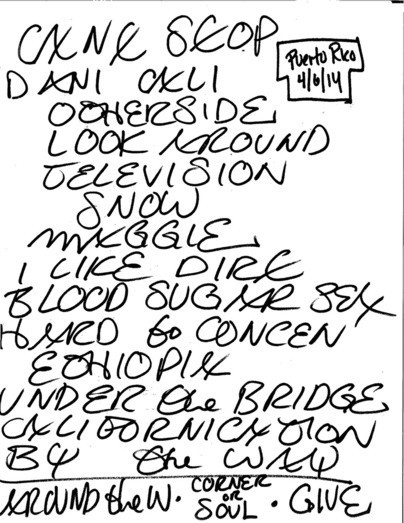 CAN'T STOP
Puerto Rico
4/6/14
DANI CALI
OTHERSIDE
LOOK AROUND
TELEVISION
SNOW
MAGGIE
I LIKE DIRT
BLOOD SUGAR SEX
HARD to CONCEN
ETHIOPIA
UNDER the BRIDGE
CALIFORNICATION
BY the WAY
AROUND the W. CORNER or SOUL. GIVE